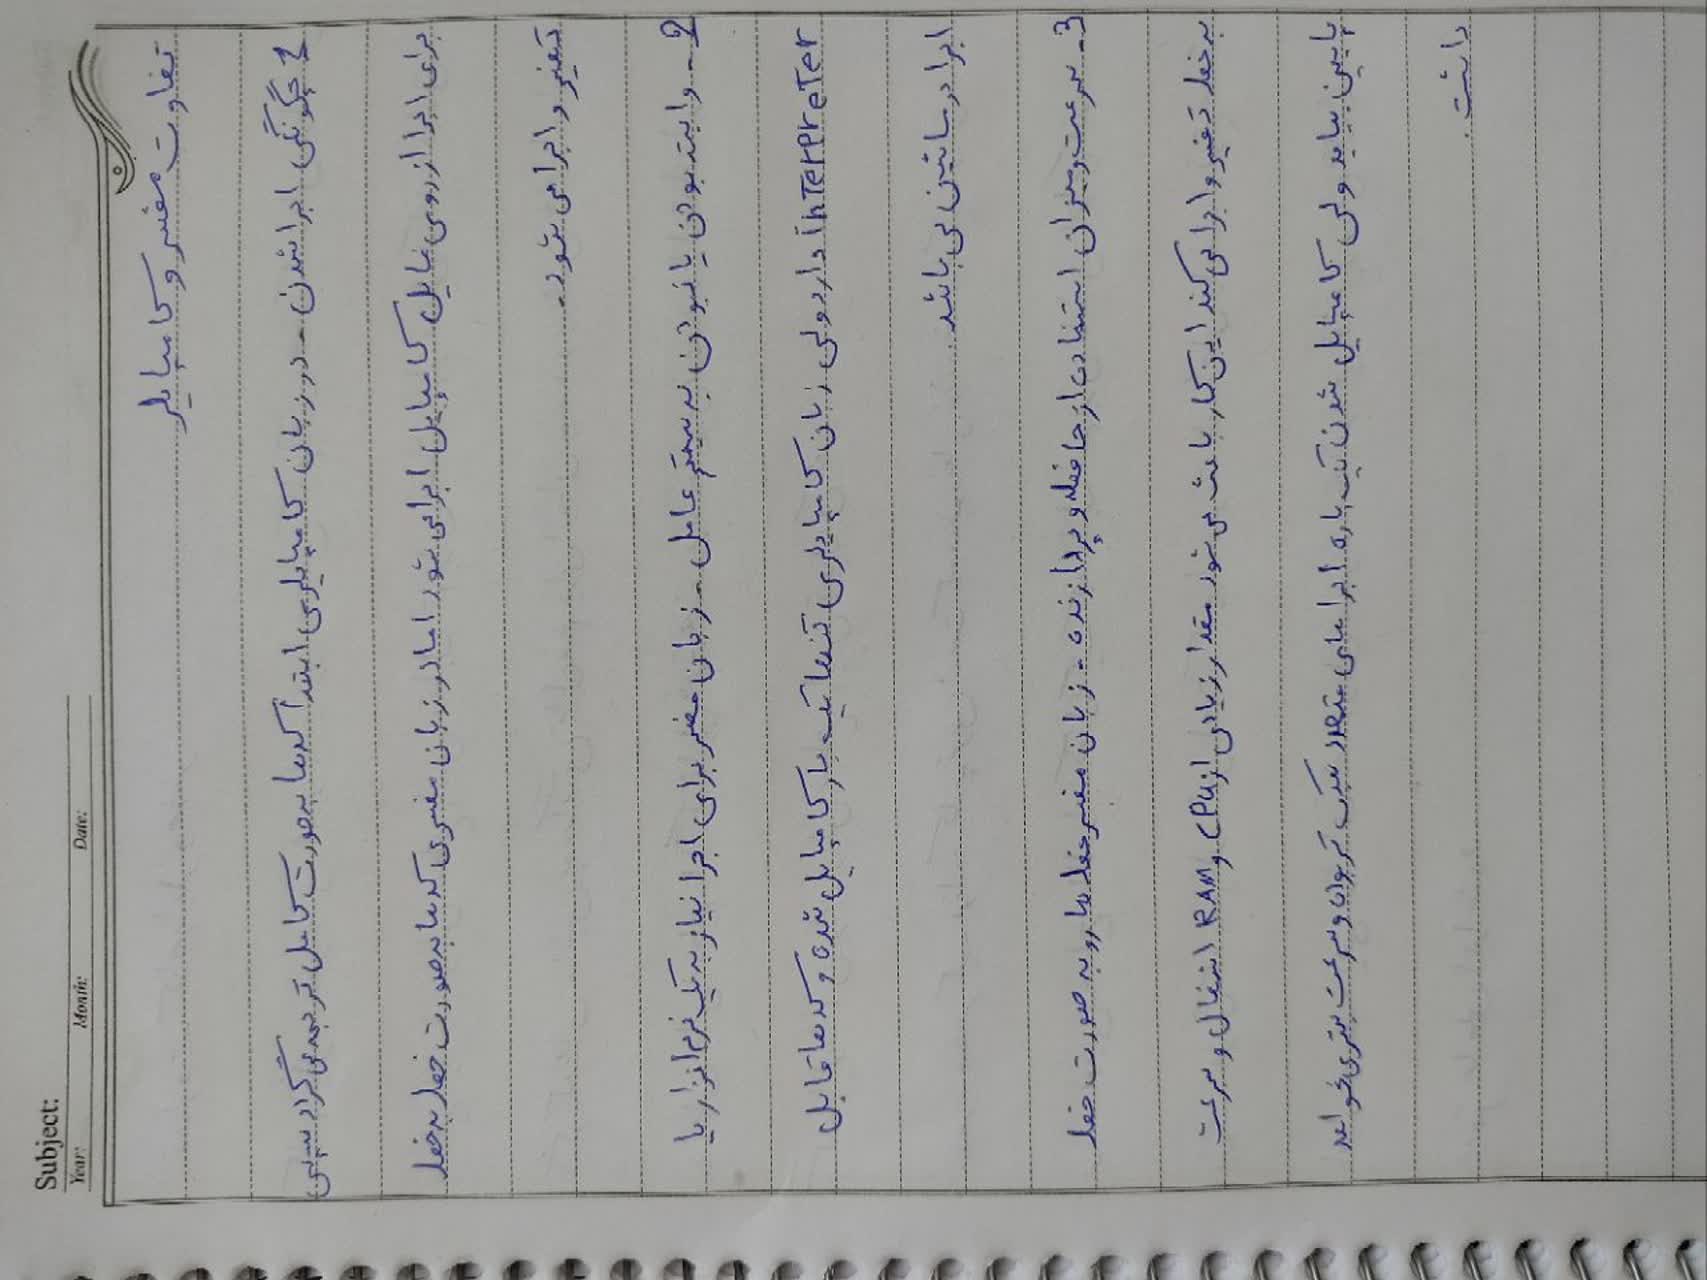 Subject:
Year: Month: Date:
تفاوت مفسر و کامپایلر
1 چگونگی اجرا شدن - در زبان کامپایلری ابتدا کدها به صورت کامل ترجمه می گردد سپس
برای اجرا از روی فایل کامپایل اجرا می شود اما در زبان مفسری کدها به صورت خط به خط
تفسیر و اجرا می شود.
2- وابسته بودن یا نبودن به سیستم عامل - زبان مفسر برای اجرا نیاز به یک نرم افزار یا
inTerpreTer دارد ولی زبان کامپایلری تنها یک بار کامپایل شده و کدها قابل
اجرا در ماشین می باشد.
3- سرعت و میزان استفاده از حافظه و پردازنده - زبان مفسر خط ها رو به صورت خط
به خط تفسیر و اجرا می کند این کار باعث می شود مقدار زیادی از CPU و RAM اشغال و سرعت
پایین بیاید ولی کامپایل شدن یک باره اجرا های متعدد سبک تر بوده و سرعت بیتری خواهد
داشت.